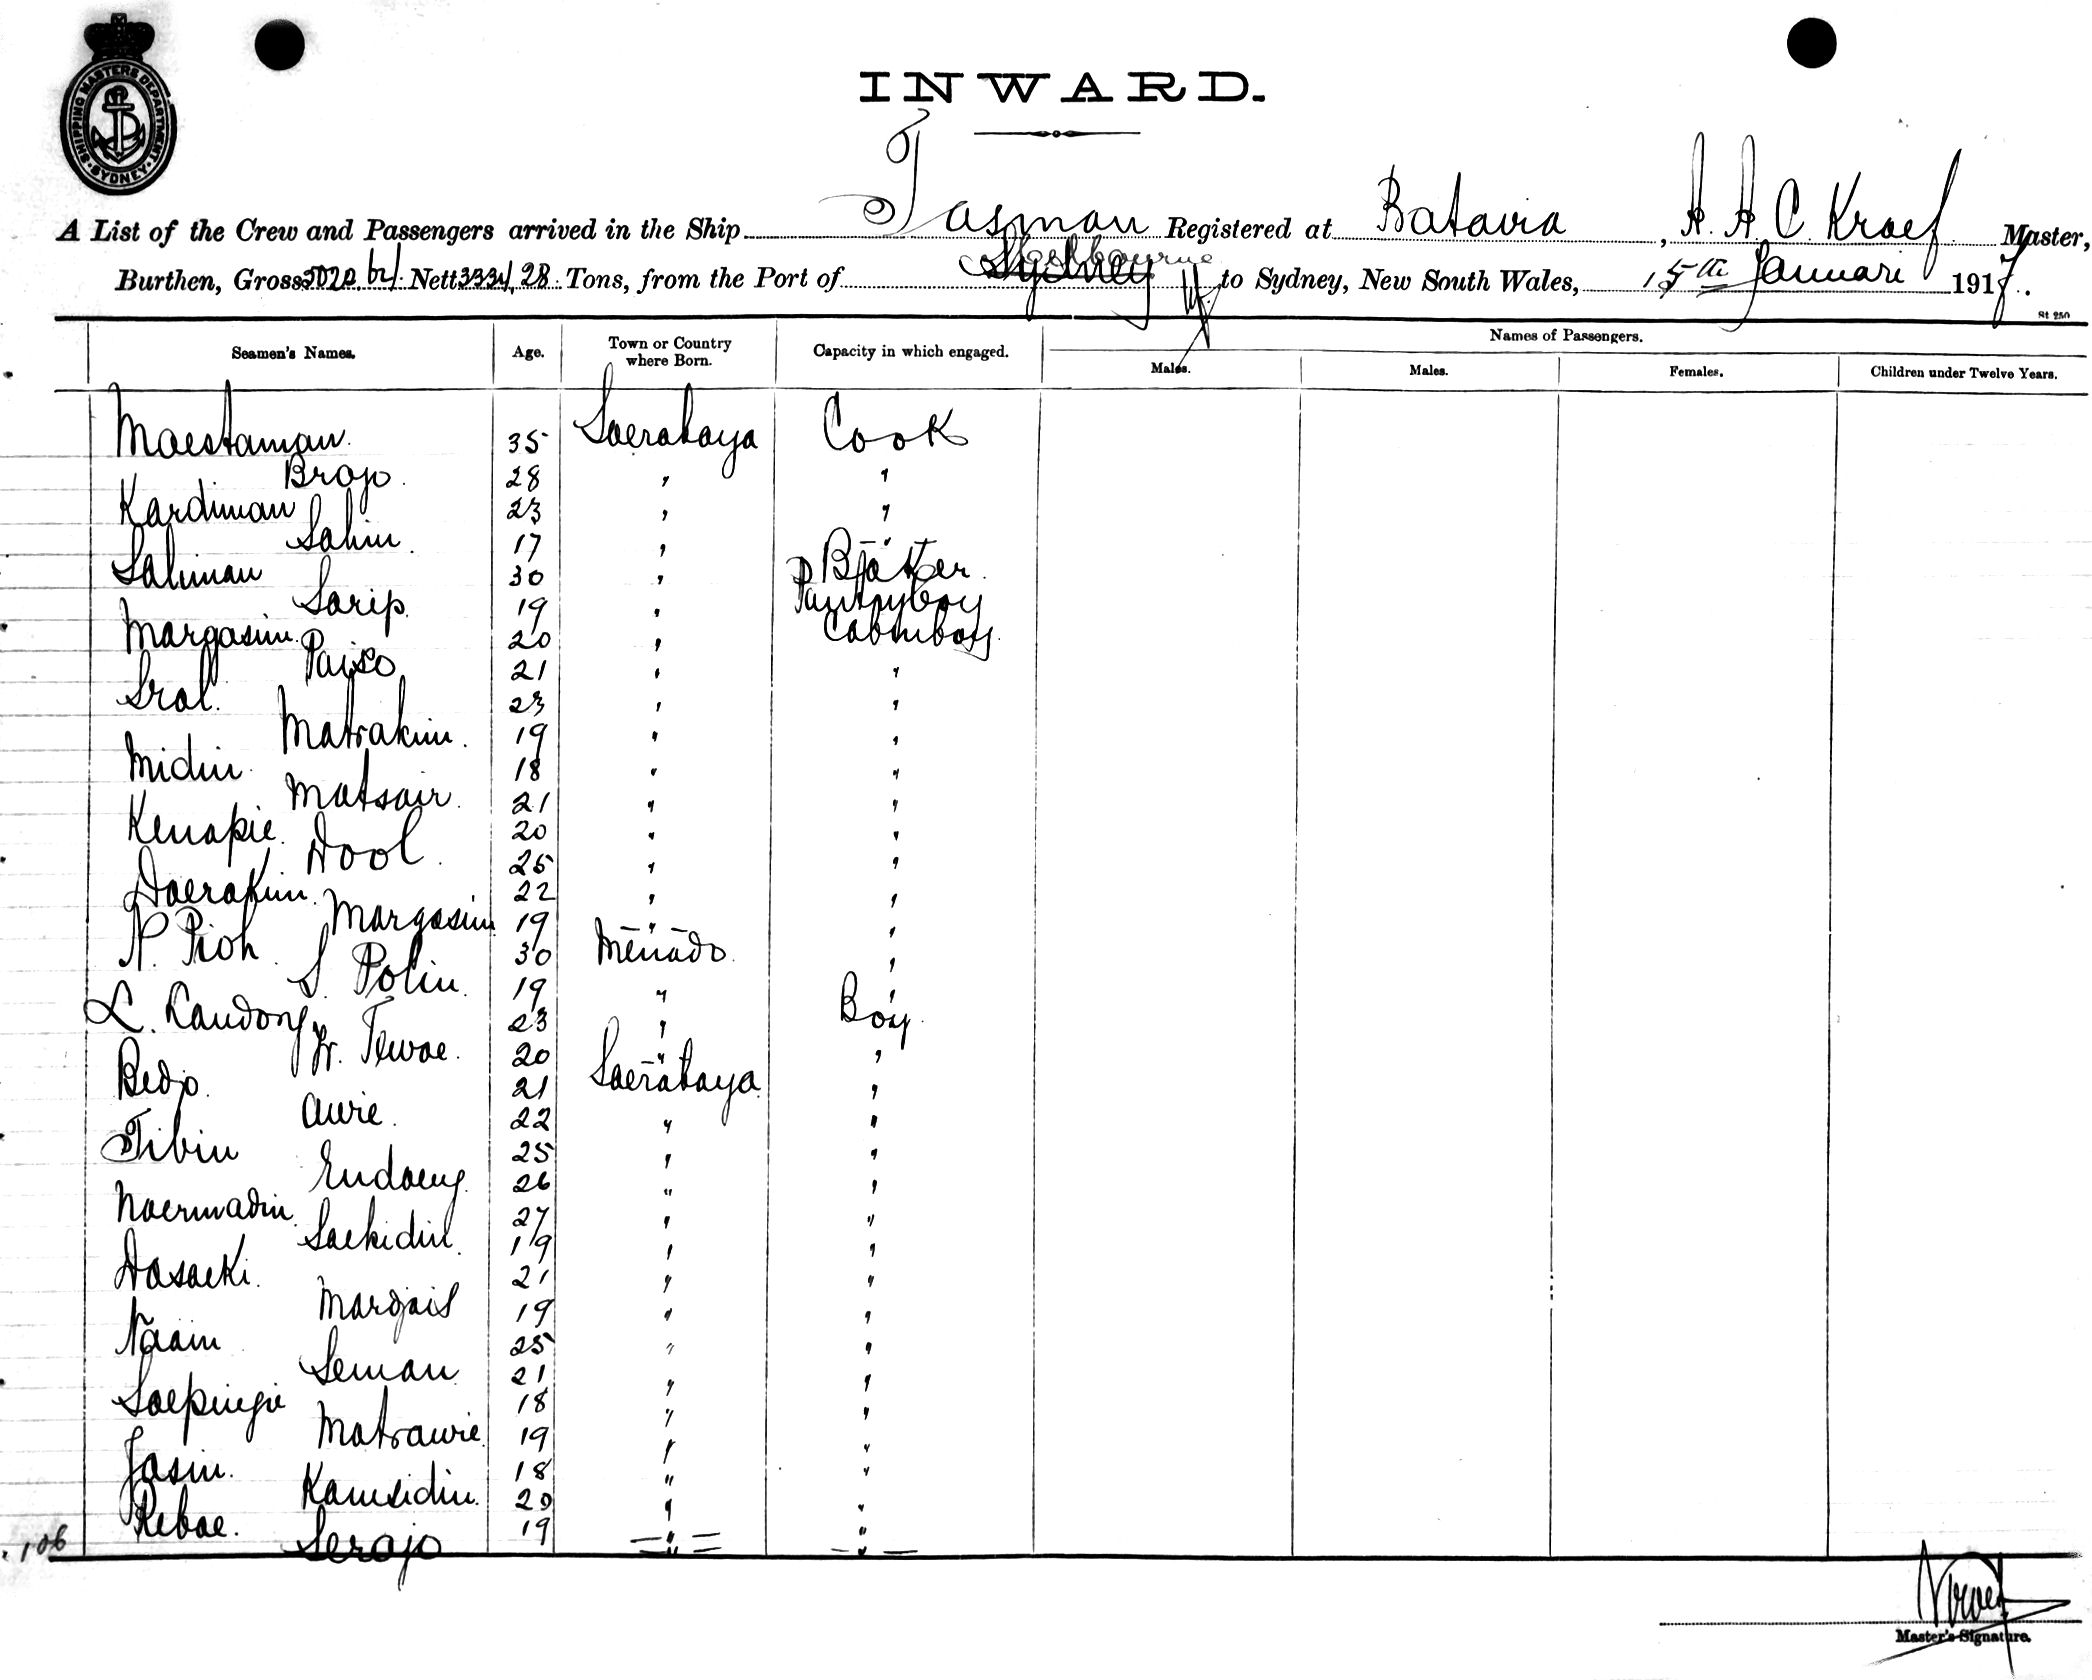 SHIPPING MASTERS DEPARTMENT
SYDNEY
INWARD.
A List of the Crew and Passengers arrived in the Ship Tasman Registered at Batavia, A. A. C. Kraef Master,
Burthen, Gross 5020.64 Nett 3334,28 Tons, from the Port of Sydney Melbourne to Sydney, New South Wales, 15th Januari 1917.
St 250
Seamen's Names. Age. Town or Country where Born. Capacity in which engaged. Names of Passengers.
Males. Males. Females. Children under Twelve Years.
Moestaman 35 Soerabaya Cook
Brojo. 28 " "
Kardiman 23 " "
Sahin. 17 " "
Saliman 30 " Baker.
Sarip. 19 " Pantryboy
Margasim. 20 " Cabinboy.
Paiso 21 " "
Sral. 23 " "
Matrakim. 19 " "
Midin. 18 " "
Matsair. 21 " "
Kenapie. 20 " "
Dool. 25 " "
Doerakim. 22 " "
Margasim 19 " "
N. Pioh 30 Menado. "
S. Polin. 19 " "
L. Laudong 23 " Boy.
Fr. Tewoe. 20 " "
Bedjo. 21 Soerabaya. "
Awie. 22 " "
Tibin 25 " "
Endoeng. 26 " "
Noermadin. 27 " "
Soekidin. 19 " "
Dasoeki. 21 " "
Mardjais 19 " "
Naaim 25 " "
Seman 21 " "
Soepingie 18 " "
Matrawie. 19 " "
Jasin. 18 " "
Kamsidin. 20 " "
Reboe. 19 " "
106 Serojo " "
Kraef
Master's Signature.